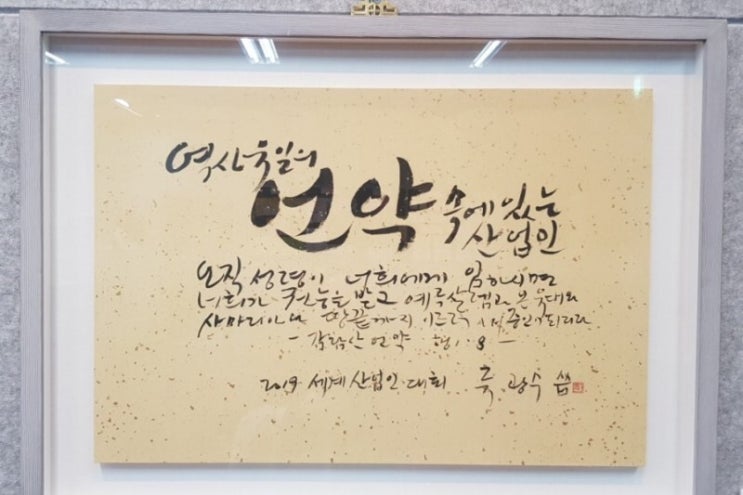 역사 유일의
언약 속에 있는
산업인
오직 성령이 너희에게 임하시면
너희가 권능을 받고 예루살렘과 온 유대와
사마리아와 땅끝까지 이르러 내 증인이 되리라
- 감람산 언약 행1:8 -
2019 세계산업인대회 류광수 씀